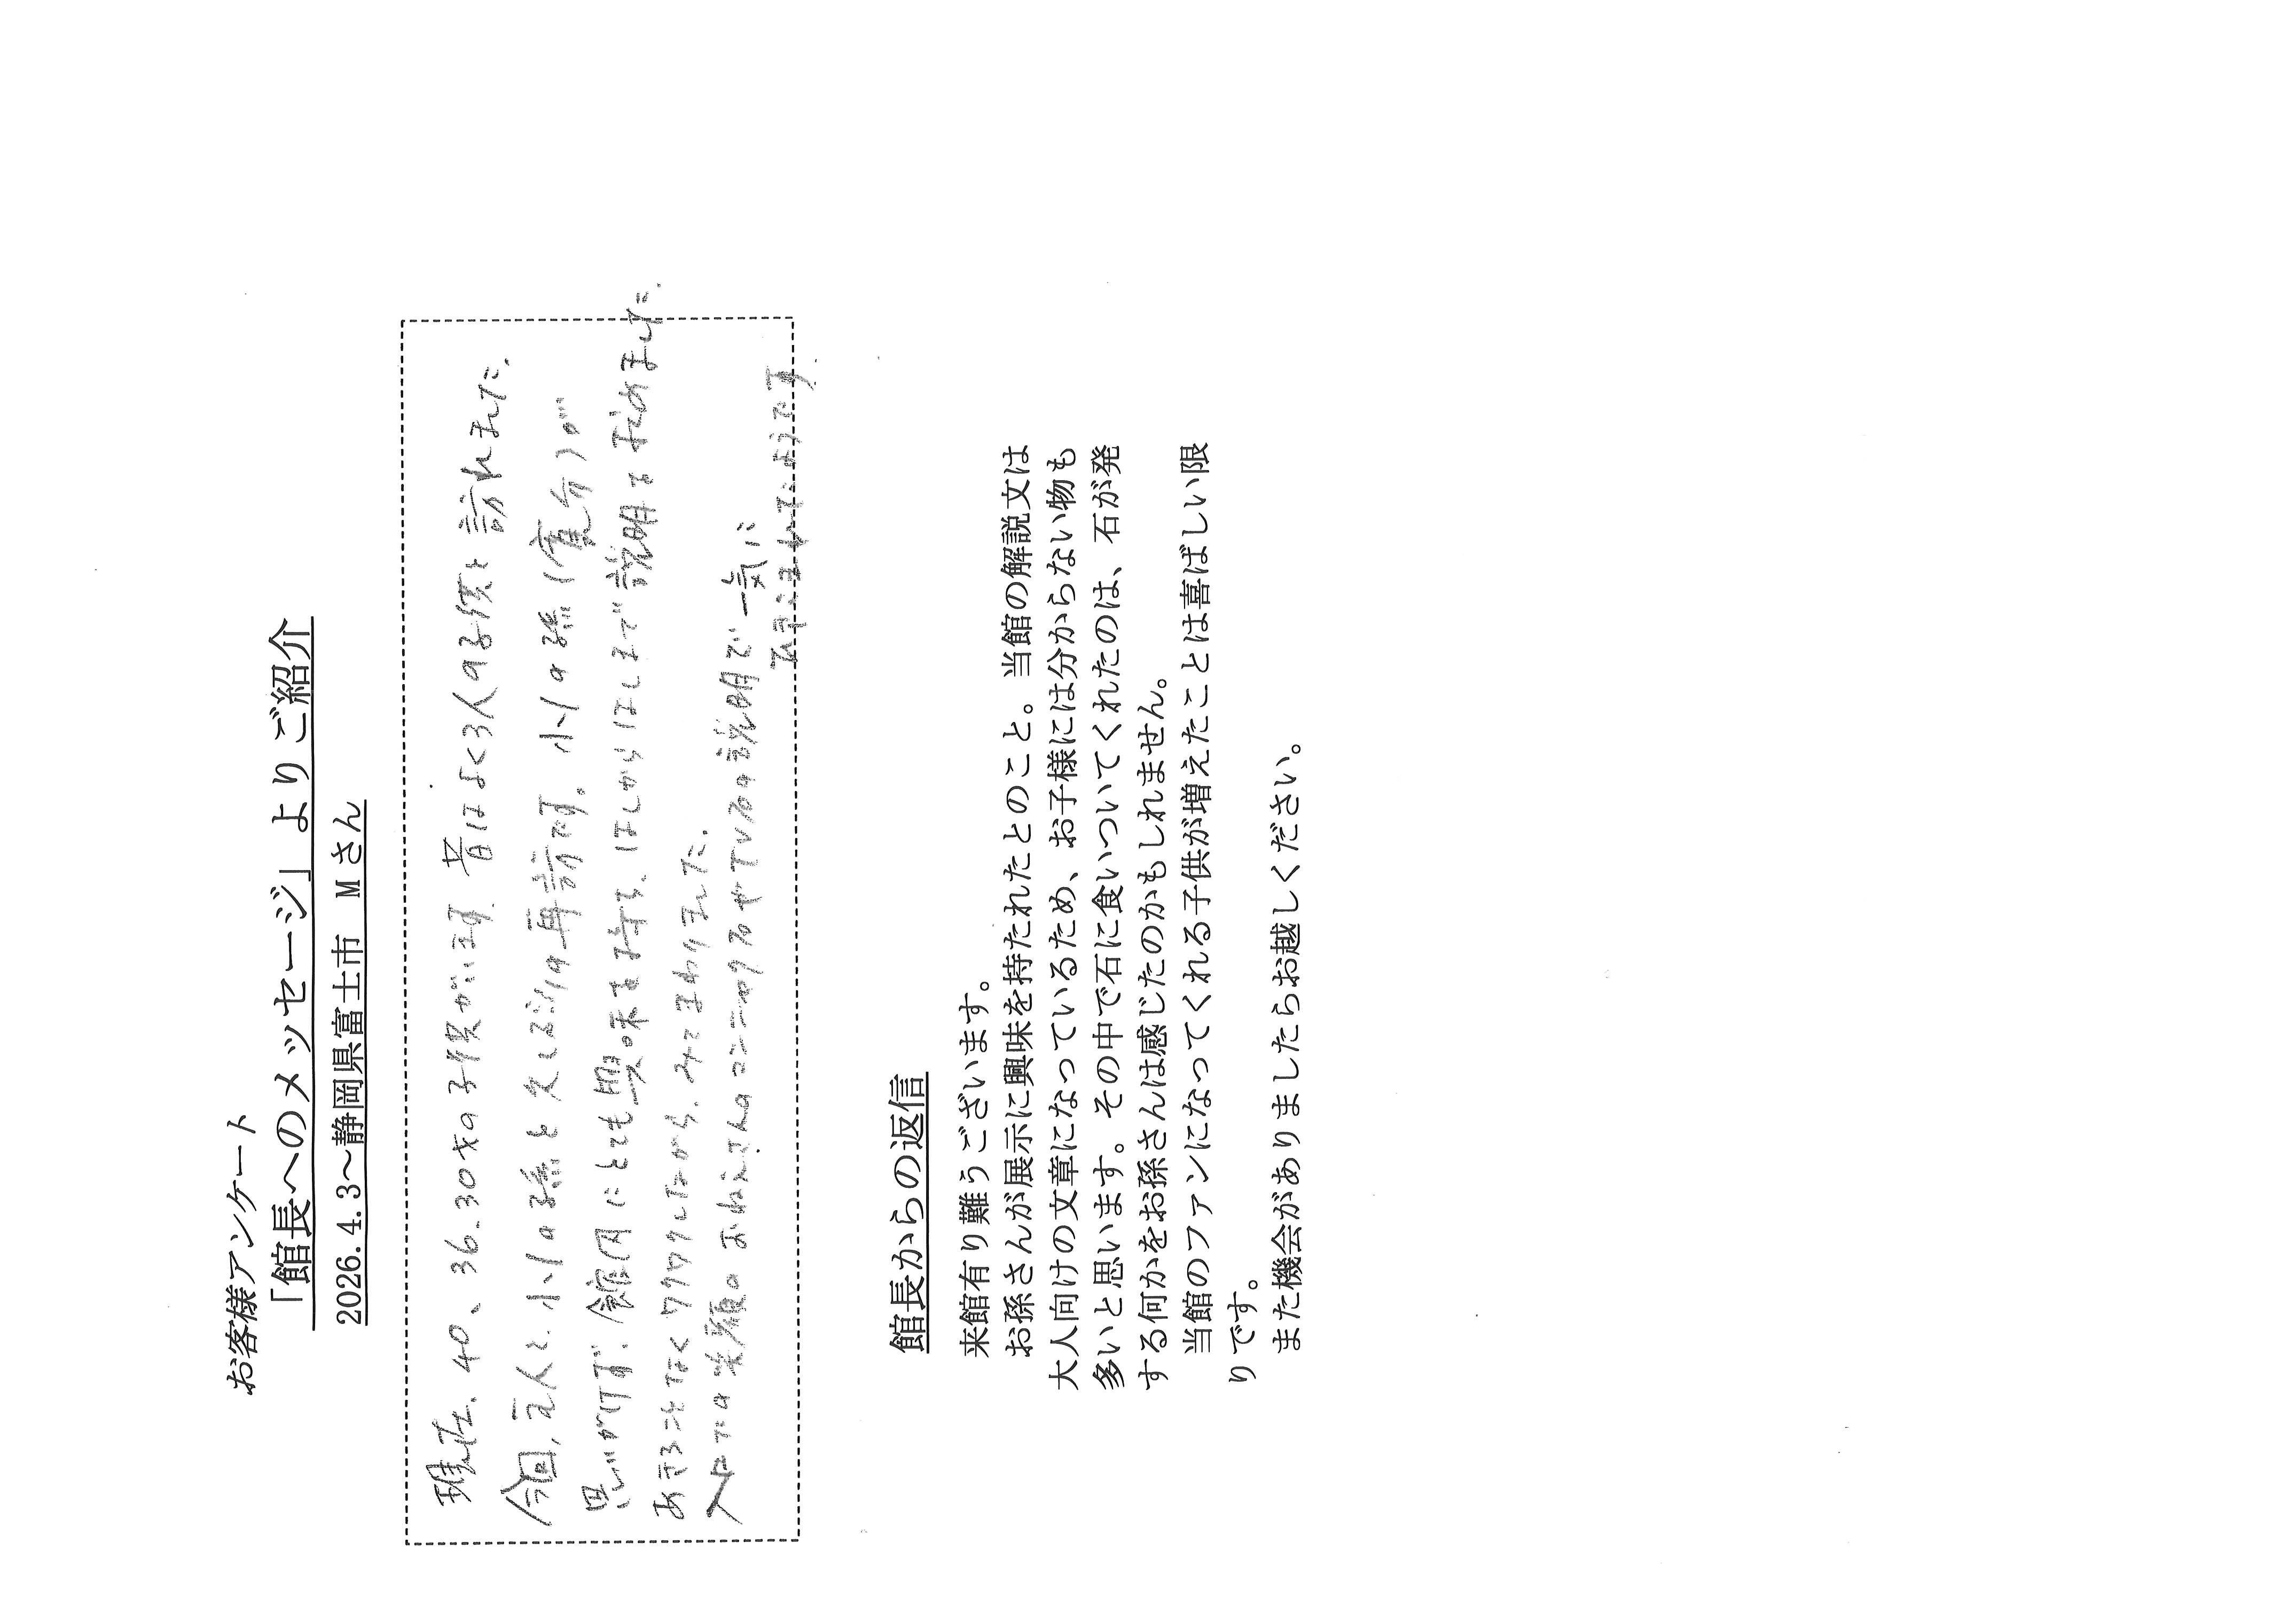 お客様アンケート
「館長へのメッセージ」よりご紹介
2026.4.3～静岡県富士市　Mさん
現在、40、36、30才の子供がいます。昔はよく3人の子供と訪れました。
今回、主人と、小1の孫と久しぶりの再訪です。小1の孫（寛介）が
思いがけず、館内にとても興味を持ち、はしからはしまで説明を求めました。
あきることなくワクワクしながら、みてまわりました。
入口での笑顔のおねえさんのコンニャク石やTV石の説明で一気に
引きこまれたようです。
館長からの返信
来館有り難うございます。
お孫さんが展示に興味を持たれたとのこと。当館の解説文は
大人向けの文章になっているため、お子様には分からない物も
多いと思います。その中で石に食いついてくれたのは、石が発
する何かをお孫さんは感じたのかもしれません。
当館のファンになってくれる子供が増えたことは喜ばしい限
りです。
また機会がありましたらお越しください。